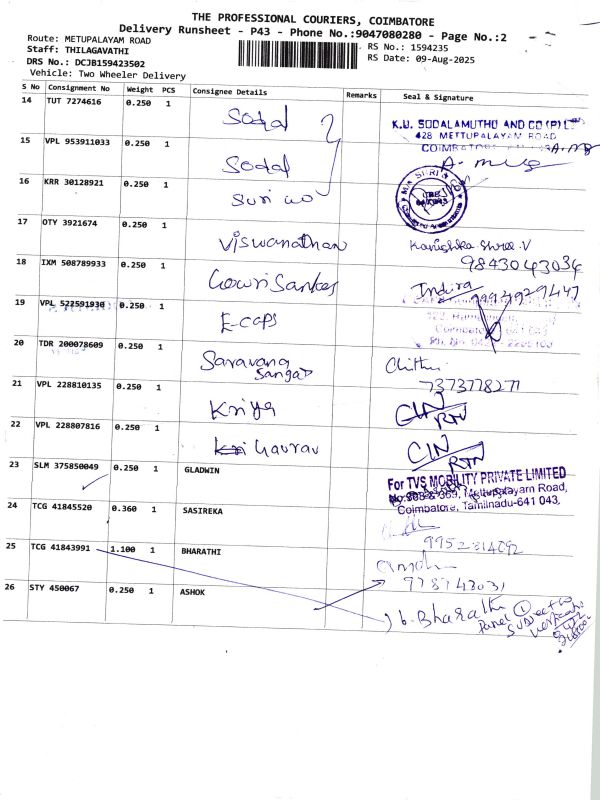 THE PROFESSIONAL COURIERS, COIMBATORE
Delivery Runsheet - P43 - Phone No.:9047080280 - Page No.:2
Route: METUPALAYAM ROAD
Staff: THILAGAVATHI
RS No.: 1594235
DRS No.: DCJB159423502
RS Date: 09-Aug-2025
Vehicle: Two Wheeler Delivery
S No Consignment No Weight PCS Consignee Details Remarks Seal & Signature
14 TUT 7274616 0.250 1 Sodal
K.U. SODALAMUTHU AND CO (P) L
428 METTUPALAYAM ROAD
15 VPL 953911033 0.250 1 Sodal
16 KRR 30128921 0.250 1 Suri co
17 OTY 3921674 0.250 1 Viswanathan Kanishka Shree.V
9843043036
18 IXM 508789933 0.250 1 Gowri Sankar Indira
9994929447
19 VPL 522591930 0.250 1 E-Caps
20 TDR 200078609 0.250 1 Saravana
Sangar
Chithu
7373778271
21 VPL 228810135 0.250 1 Kriya CIN
RTN
22 VPL 228807816 0.250 1 Gaurav CIN
RTN
23 SLM 375850049 0.250 1 GLADWIN
For TVS MOBILITY PRIVATE LIMITED
Mettupalayam Road,
Coimbatore, Tamilnadu-641 043.
24 TCG 41845520 0.360 1 SASIREKA
9952814092
25 TCG 41843991 1.100 1 BHARATHI
26 STY 450067 0.250 1 ASHOK
b. Bharathi